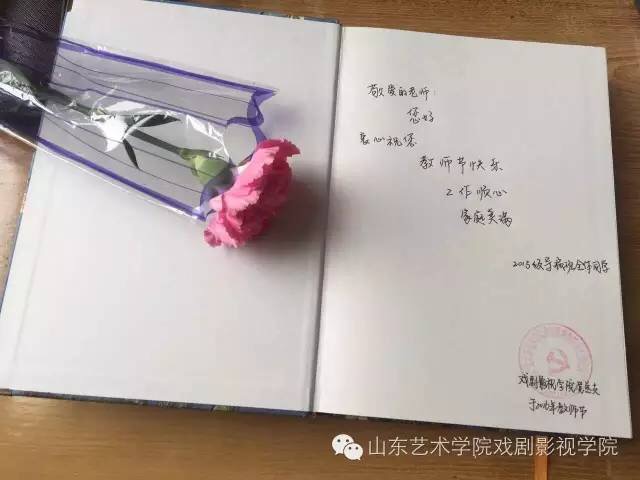 敬爱的老师：
您好
衷心祝您
教师节快乐
工作顺心
家庭美满
2015级导演班全体同学
戏剧影视学院党总支
于2016年教师节
山东艺术学院戏剧影视学院